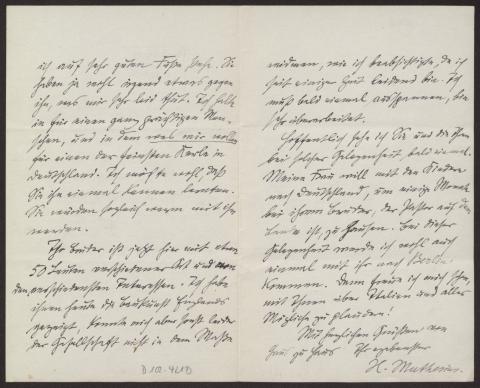 ich auf sehr guten Fuße stehe. Sie
haben ja wohl irgend etwas gegen
ihn, was mir sehr leid thut. Ich halte
ihn für einen ganz prächtigen Men-
schen, und in dem was wir wollen
für einen der feinsten Kerle in
Deutschland. Ich möchte wohl, daß
Sie ihn einmal kennen lernten.
Sie würden sogleich warm mit ihm
werden.
Ihr Bruder ist jetzt hier mit etwa
50 Leuten verschiedener Art und von
den verschiedensten Interessen. Ich habe
ihnen heute die Baukunst Englands
gezeigt, konnte mich aber sonst leider
der Gesellschaft nicht in dem Maße
widmen, wie ich beabsichtigte, da ich
seit einiger Zeit leidend bin. Ich
muß bald einmal ausspannen, bin
sehr überarbeitet.
Hoffentlich sehe ich Sie und die Ihren
bei solcher Gelegenheit bald einmal.
Meine Frau will mit den Kindern
nach Deutschland, um einige Monate
bei ihrem Bruder, der Pastor auf dem
Lande ist, zu hausen. Bei dieser
Gelegenheit werde ich wohl auch
einmal mit ihr nach Berlin
kommen. Dann freue ich mich sehr,
mit Ihnen über Italien und alles
Mögliche zu plaudern!
Mit herzlichen Grüßen von
Haus zu Haus Ihr ergebenster
H. Muthesius.